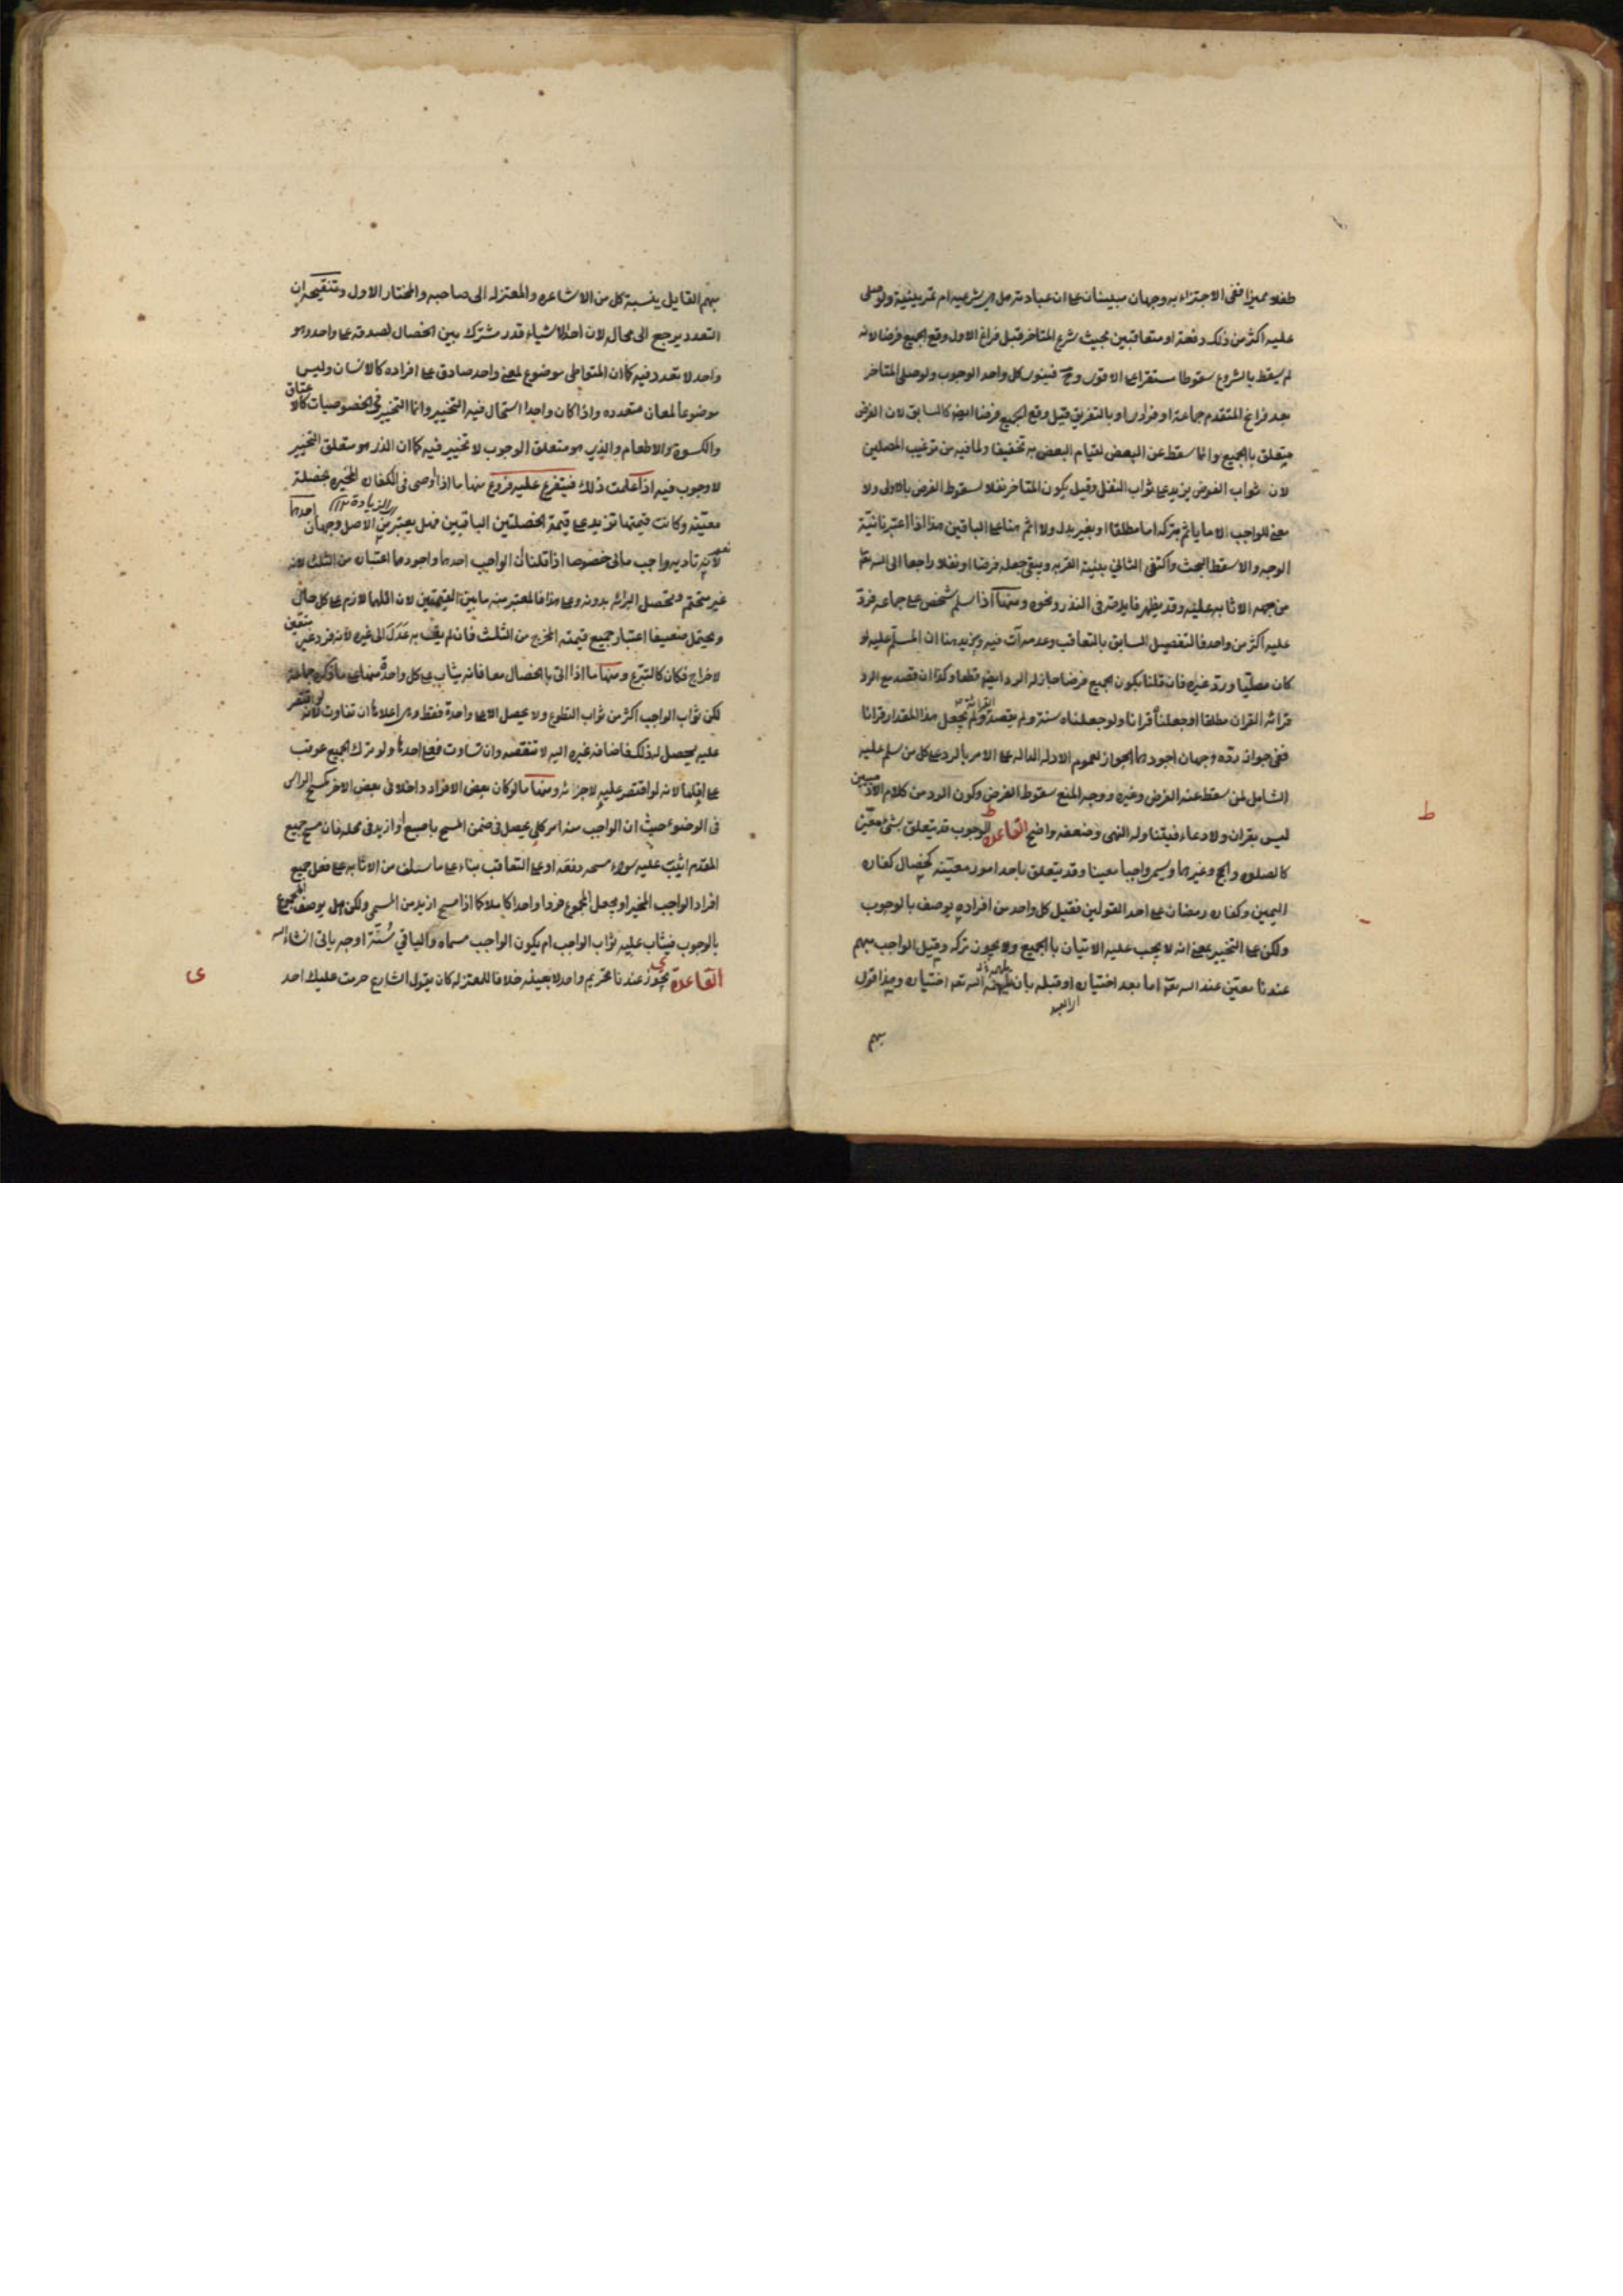 طفلا مميزا ففى الاجتزاء به وجهان مبينان على ان عبادته هل هى شرعيه ام تمرينية ولو صلى
عليه اكثر من ذلك دفعة او متعاقبين بحيث شرع المتاخر قبل فراغ الاول وقع الجميع فرضا لانه
لم يسقط بالشروع سقوطا مستقرا على الاقوى وح فينوى كل واحد الوجوب ولو صلى المتاخر
بعد فراغ المتقدم جماعة او فرادى او بالتفريق قيل وقع الجميع فرضا ايضا كالسابق لان الفرض
متعلق بالجميع وانما سقط عن البعض لقيام البعض به تخفيفا ولما فيه من ترغيب المصلين
لان ثواب الفرض يزيد على ثواب النفل وقيل يكون المتاخر نفلا لسقوط الفرض بالاولى ولا
معنى للواجب الا ما ياثم بتركه اما مطلقا او بغير بدل ولا اثم هنا على الباقين هذا اذا اعتبرنا نية
الوجه والا سقط البحث واكتفى الثاني بنية القربه ويبقى جعله فرضا او نفلا راجعا الى الله تعالى
من جهه الاثابه عليه وقد يظهر فايدته فى النذر ونحوه ومنها اذا سلم شخص على جماعه فرد
عليه اكثر من واحد فالتفصيل السابق بالتعاقب وعدمه آت فيه ويزيد هنا ان المسلم عليه لو
كان مصليا ورد غيره فان قلنا يكون الجميع فرضا جاز له الرد ايضا قطعا وكذا ان قصد مع الرد
قرائه القران مطلقا او جعلناه قرانا ولو جعلناه سنة ولم يقصد القرائة ولم يجعل هذا المقدار قرانا
ففى جواز رده وجهان اجودهما الجواز لعموم الادله الداله على الامر بالرد على كل من سلم عليه
الشامل لمن سقط عنه الفرض وغيره ووجه المنع سقوط الفرض وكون الرد من كلام الآدميين
ليس بقران ولا دعاء فيتناوله النهى وضعفه واضح القاعدة ط الوجوب قد يتعلق بشئ معين
كالصلوه والحج وغيرهما ويسمى واجبا معينا وقد يتعلق باحد امور معينه كخصال كفاره
اليمين وكفاره رمضان على احد القولين فقيل كل واحد من افراده يوصف بالوجوب
ولكن على التخيير بمعنى انه لا يجب عليه الاتيان بالجميع ولا يجوز تركه وقيل الواجب مبهم
عندنا معين عند الله تعالى اما بعد اختياره او قبله بان يلهمه الله تعالى اختياره وهذا قول
مبهم
ط
مبهم القايل ينسبة كل من الاشاعره والمعتزله الى صاحبه والمختار الاول وتنقيحه ان
التعدد يرجع الى محاله لان احد الاشياء قدر مشترك بين الخصال لصدقه على واحد وهو
واحد لا تعدد فيه كما ان المتواطى موضوع لمعنى واحد صادق على افراده كالانسان وليس
موضوعا لمعان متعدده واذا كان واحدا استحال فيه التخيير وانما التخيير فى الخصوصيات كالاعتاق
والكسوة والاطعام والذى هو متعلق الوجوب لا تخيير فيه كما ان الذى هو متعلق التخيير
لا وجوب فيه اذا علمت ذلك فيتفرع عليه فروع منها ما اذا اوصى فى الكفاره المخيره بخصلة
معينه وكانت قيمتها تزيد على قيمة الخصلتين الباقيتين فهل يعتبر الزيادة من الاصل وجهان احدهما
نعم لانه تاديه واجب مالى خصوصا اذا قلنا ان الواجب احدها واجودهما اعتباره من الثلث لانه
غير متحتم وتحصل البرائه بدونه وعلى هذا فالمعتبر منه ما بين القيمتين لان اقلهما لازم على كل حال
ويحتمل ضعيفا اعتبار جميع قيمته المخرج من الثلث فان لم يف به عدل الى غيره لانه فرد غير متعين
لاخراج فكان كالتبرع ومنها ما اذا اتى بالخصال معا فانه يثاب على كل واحدة منها
لكن ثواب الواجب اكثر من ثواب التطوع ولا يحصل الا على واحدة فقط وهى اعلاها ان تفاوتت لانه لو اقتصر
عليه لحصل له ذلك فاضافه غيره اليه لا تنقصه وان تساوت فعلى احدها ولو ترك الجميع عوقب
على اقلها لانه لو اقتصر عليه لاجزائه ومنها ما لو كان بعض الافراد داخلا فى بعض الاخر كمسح الراس
فى الوضوء حيث ان الواجب منه امر كلى يحصل فى ضمن المسح باصبع او ازيد فى محله فان مسح جميع
المقدم اثيب عليه سواء مسحه دفعه او على التعاقب بناء على ما سلف من الاثابه على فعل جميع
افراد الواجب المخير او يجعل المجموع فردا واحدا كاملا كما اذا مسح ازيد من المسمى ولكن هل يوصف المجموع
بالوجوب فيثاب عليه ثواب الواجب ام يكون الواجب مسماه والباقي سنة اوجه ياتى انشاء الله
القاعدة ى يجوز عندنا تحريم واحد لا بعينه خلافا للمعتزله كان يقول الشارع حرمت عليك احد
ى